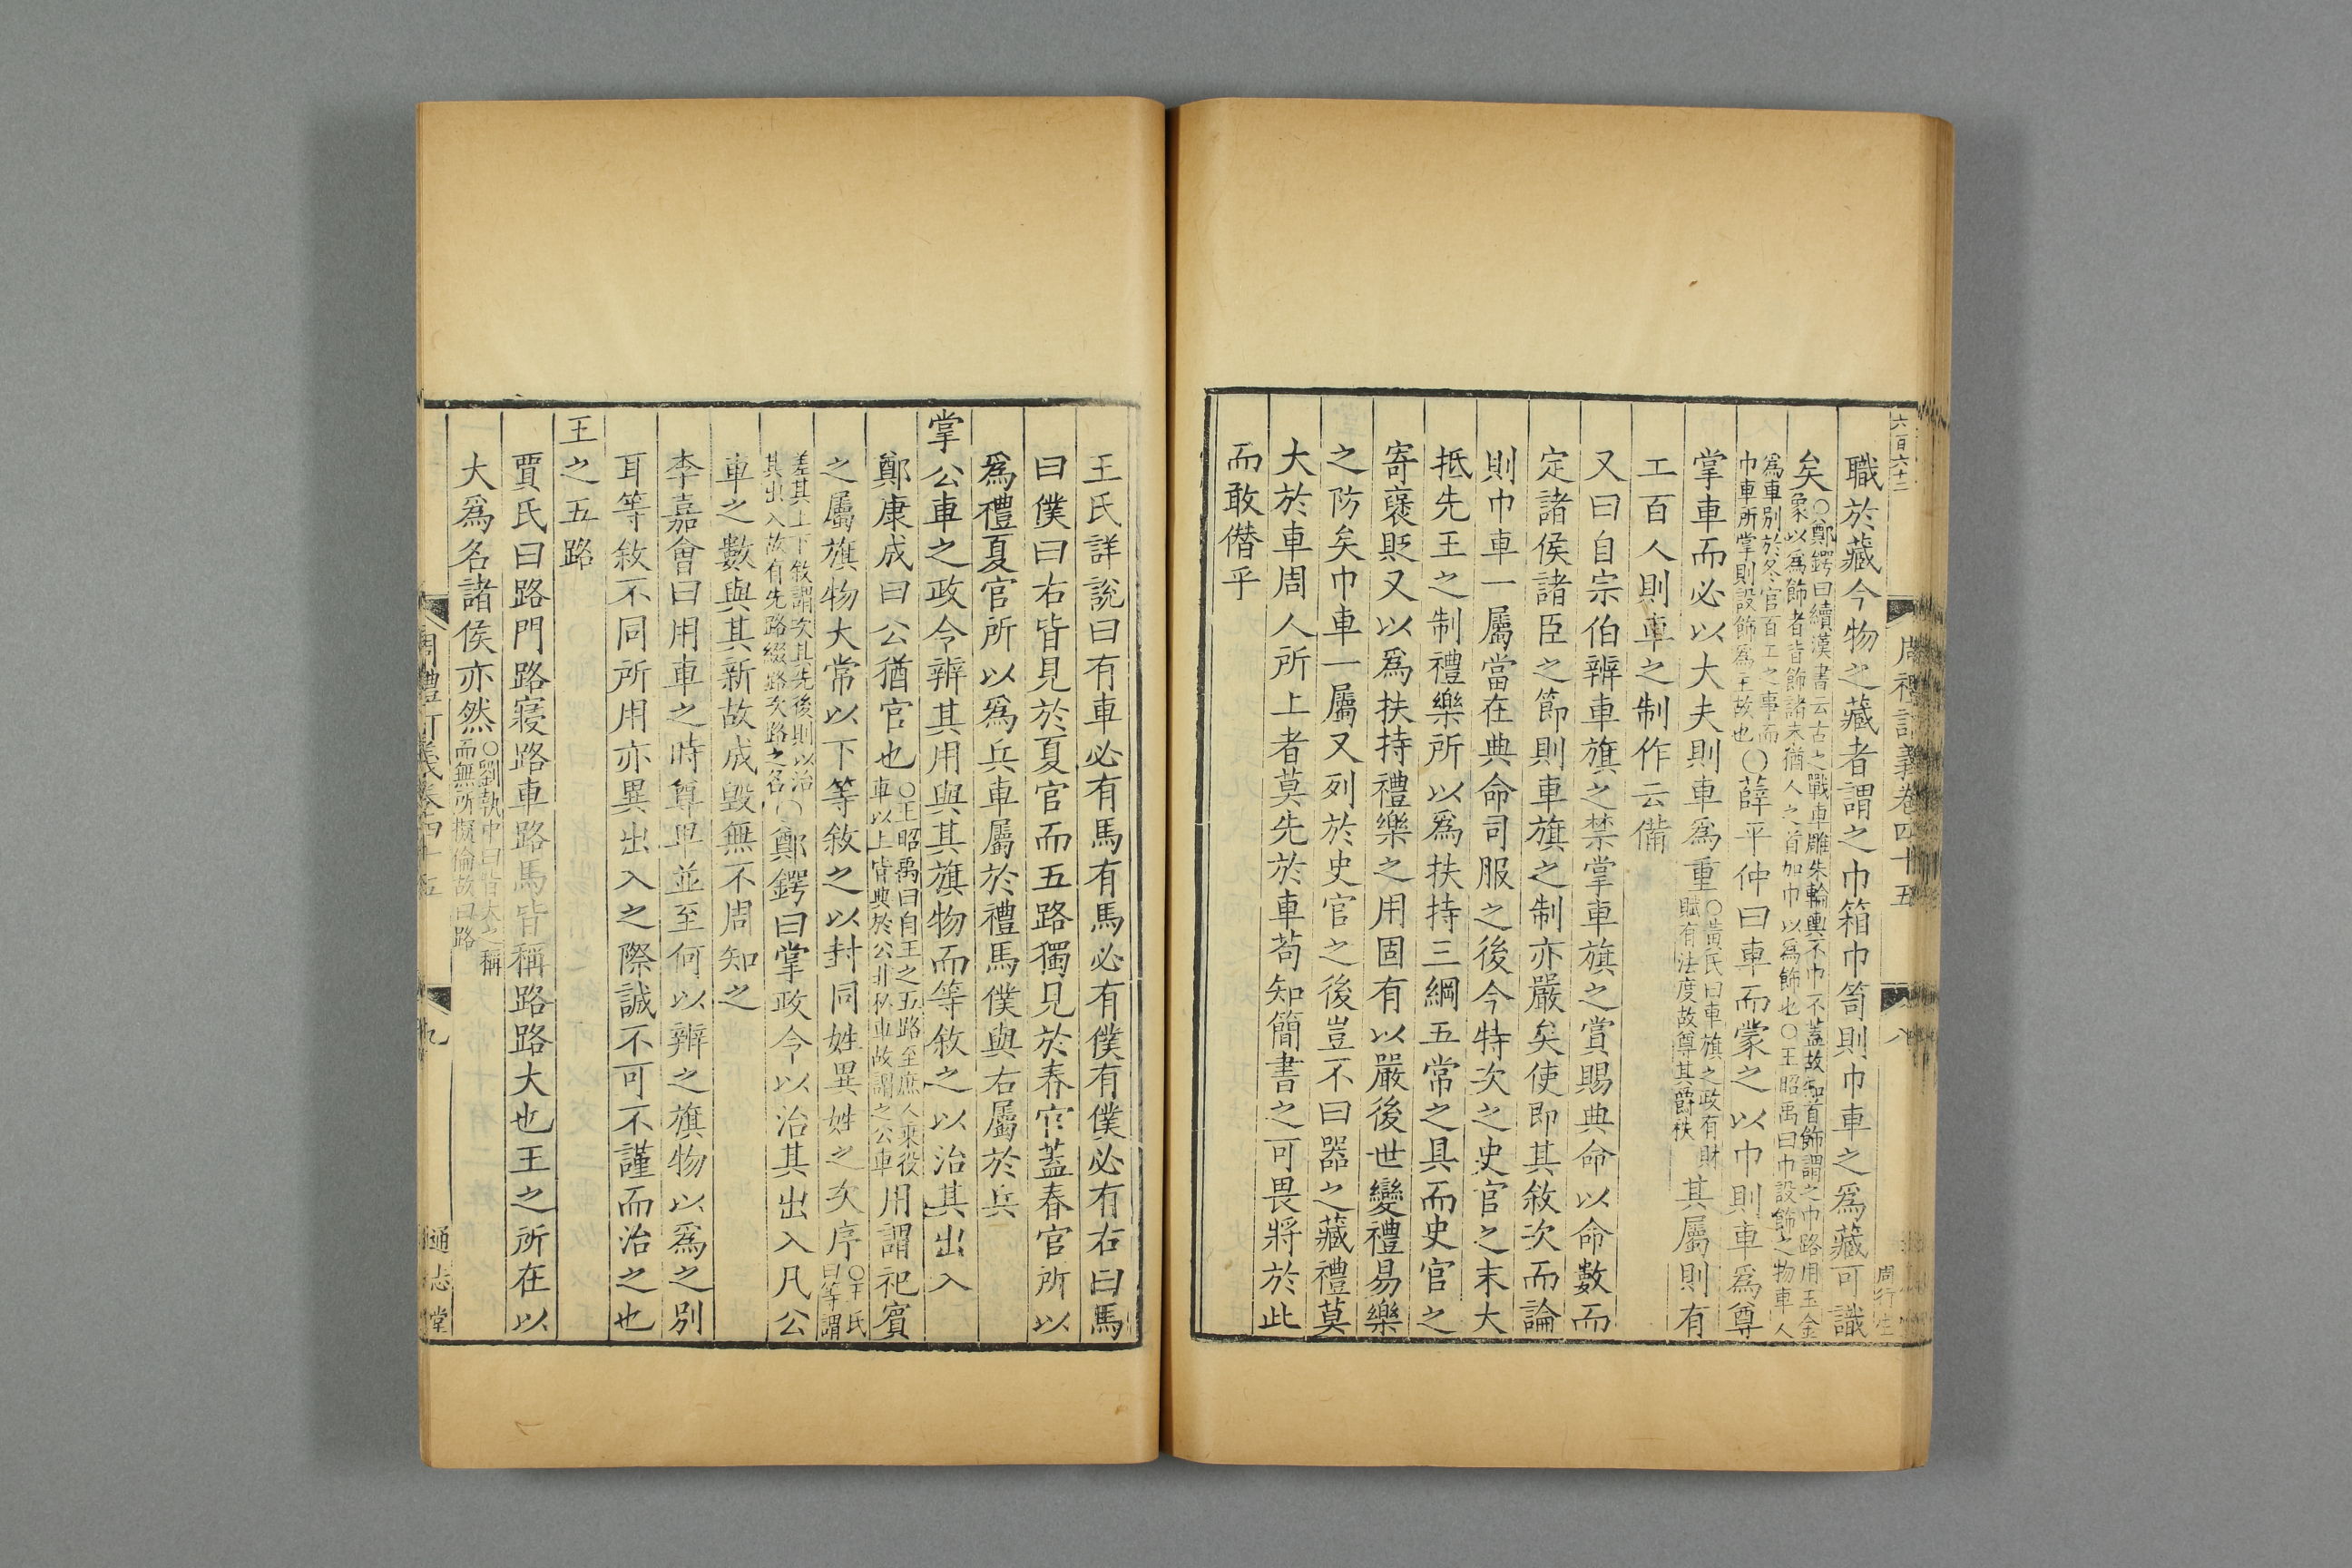 六百六十二
周禮訂義卷四十五
八
周行生
職於藏今物之藏者謂之巾箱巾笥則巾車之爲藏可識
矣
○鄭鍔曰續漢書云古之戰車雕朱輪輿不巾不蓋故知首飾謂之巾路用玉金
象以爲飾者皆飾諸末猶人之首加巾以爲飾也○王昭禹曰巾設飾之物車人
爲車別於冬官百工之事而
巾車所掌則設飾爲主故也
○薛平仲曰車而蒙之以巾則車爲尊
掌車而必以大夫則車爲重
○黃氏曰車旗之政有財
賦有法度故尊其爵秩
其屬則有
工百人則車之制作云備
又曰自宗伯辨車旗之禁掌車旗之賞賜典命以命數而
定諸侯諸臣之節則車旗之制亦嚴矣使即其敘次而論
則巾車一屬當在典命司服之後今特次之史官之末大
抵先王之制禮樂所以爲扶持三綱五常之具而史官之
寄襃貶又以爲扶持禮樂之用固有以嚴後世變禮易樂
之防矣巾車一屬又列於史官之後豈不曰器之藏禮莫
大於車周人所上者莫先於車苟知簡書之可畏將於此
而敢僣乎
王氏詳說曰有車必有馬有馬必有僕有僕必有右曰馬
曰僕曰右皆見於夏官而五路獨見於春官蓋春官所以
爲禮夏官所以爲兵車屬於禮馬僕與右屬於兵
掌公車之政令辨其用與其旗物而等敘之以治其出入
鄭康成曰公猶官也
○王昭禹曰自王之五路至庶人乘役
車以上皆典於公非私車故謂之公車
用謂祀賓
之屬旗物大常以下等敘之以封同姓異姓之次序
○王氏
曰等謂
差其上下敘謂次其先後則以治
其出入故有先路綴路次路之名
○鄭鍔曰掌政令以治其出入凡公
車之數與其新故成毀無不周知之
李嘉會曰用車之時尊卑並至何以辨之旗物以爲之別
耳等敘不同所用亦異出入之際誠不可不謹而治之也
王之五路
賈氏曰路門路寢路車路馬皆稱路路大也王之所在以
大爲名諸侯亦然
○劉執中曰皆大之稱
而無所擬倫故曰路
周禮訂義卷四十五
九
通志堂